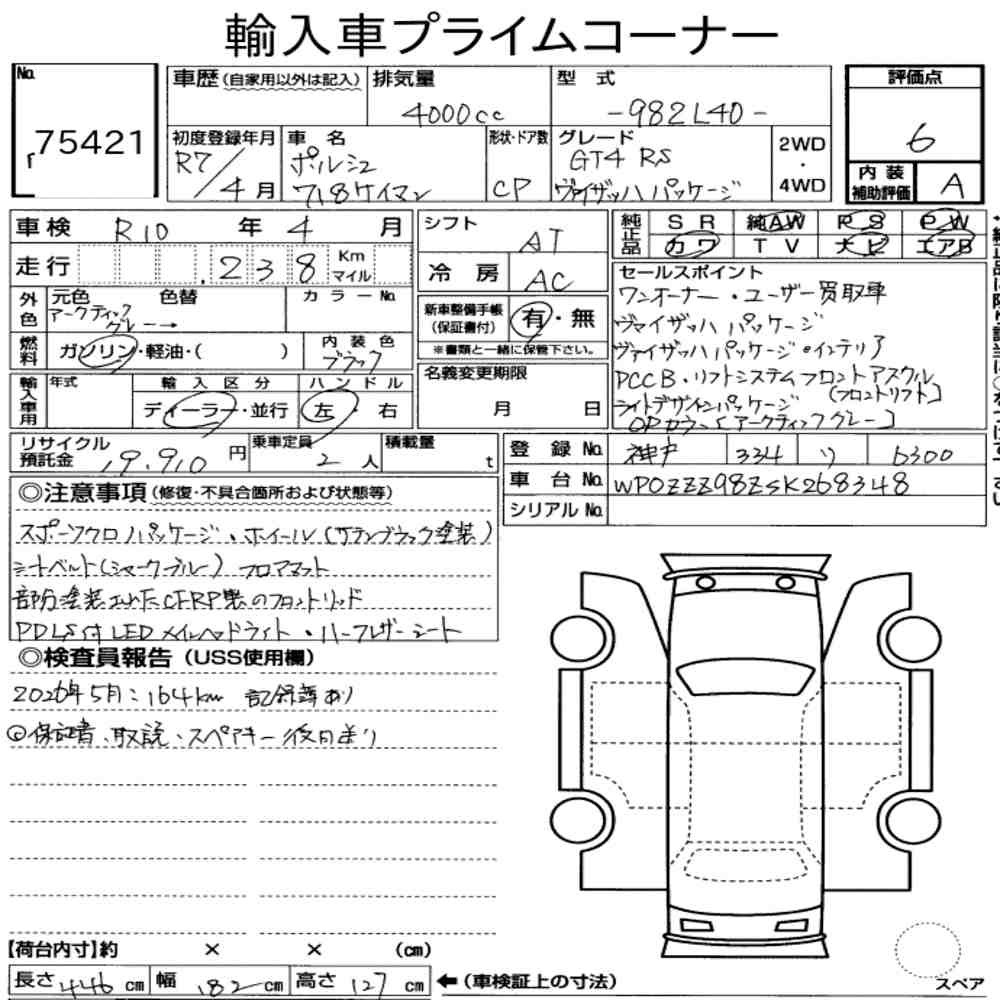 輸入車プライムコーナー
No. 75421
車歴(自家用以外は記入) 排気量 4000cc 型式 -982L40-
評価点 6
初度登録年月 R7/4月
車名 ポルシェ 718ケイマン
形状・ドア数 CP
グレード GT4 RS ヴァイザッハパッケージ
2WD・4WD
内装補助評価 A
車検 R10年4月
シフト AT
純正品 SR 純AW PS PW
カワ TV ナビ エアB
走行 238 Km マイル
冷房 AC
セールスポイント
ワンオーナー・ユーザー買取車
ヴァイザッハパッケージ
ヴァイザッハパッケージ・インテリア
PCCB・リフトシステムフロントアスクル
[フロントリフト]
ライトデザインパッケージ
OPカラー[アークティックグレー]
外色 元色 色替 カラーNo.
アークティックグレー→
新車整備手帳(保証書付) 有・無
※書類と一緒に保管下さい。
燃料 ガソリン・軽油・( )
内装色 ブラック
名義変更期限 月 日
輸入車用 年式 輸入区分 ハンドル
ディーラー・並行 左・右
リサイクル預託金 19,910円
乗車定員 2人
積載量 t
登録No. 神戸 334 ツ 6300
車台No. WP0ZZZ98ZSK268348
シリアルNo.
◎注意事項(修復・不具合箇所および状態等)
スポーツクロノパッケージ・ホイール(サテンブラック塗装)
シートベルト(シャークブルー) フロアマット
部分塗装されたCFRP製のフロントリッド
PDLS付LEDメインヘッドライト・ハーフレザーシート
◎検査員報告(USS使用欄)
2026年5月:164km 記録簿あり
保証書、取説、スペアキー後日送り
【荷台内寸】約 × × (cm)
長さ446cm 幅182cm 高さ127cm ←(車検証上の寸法)
スペア